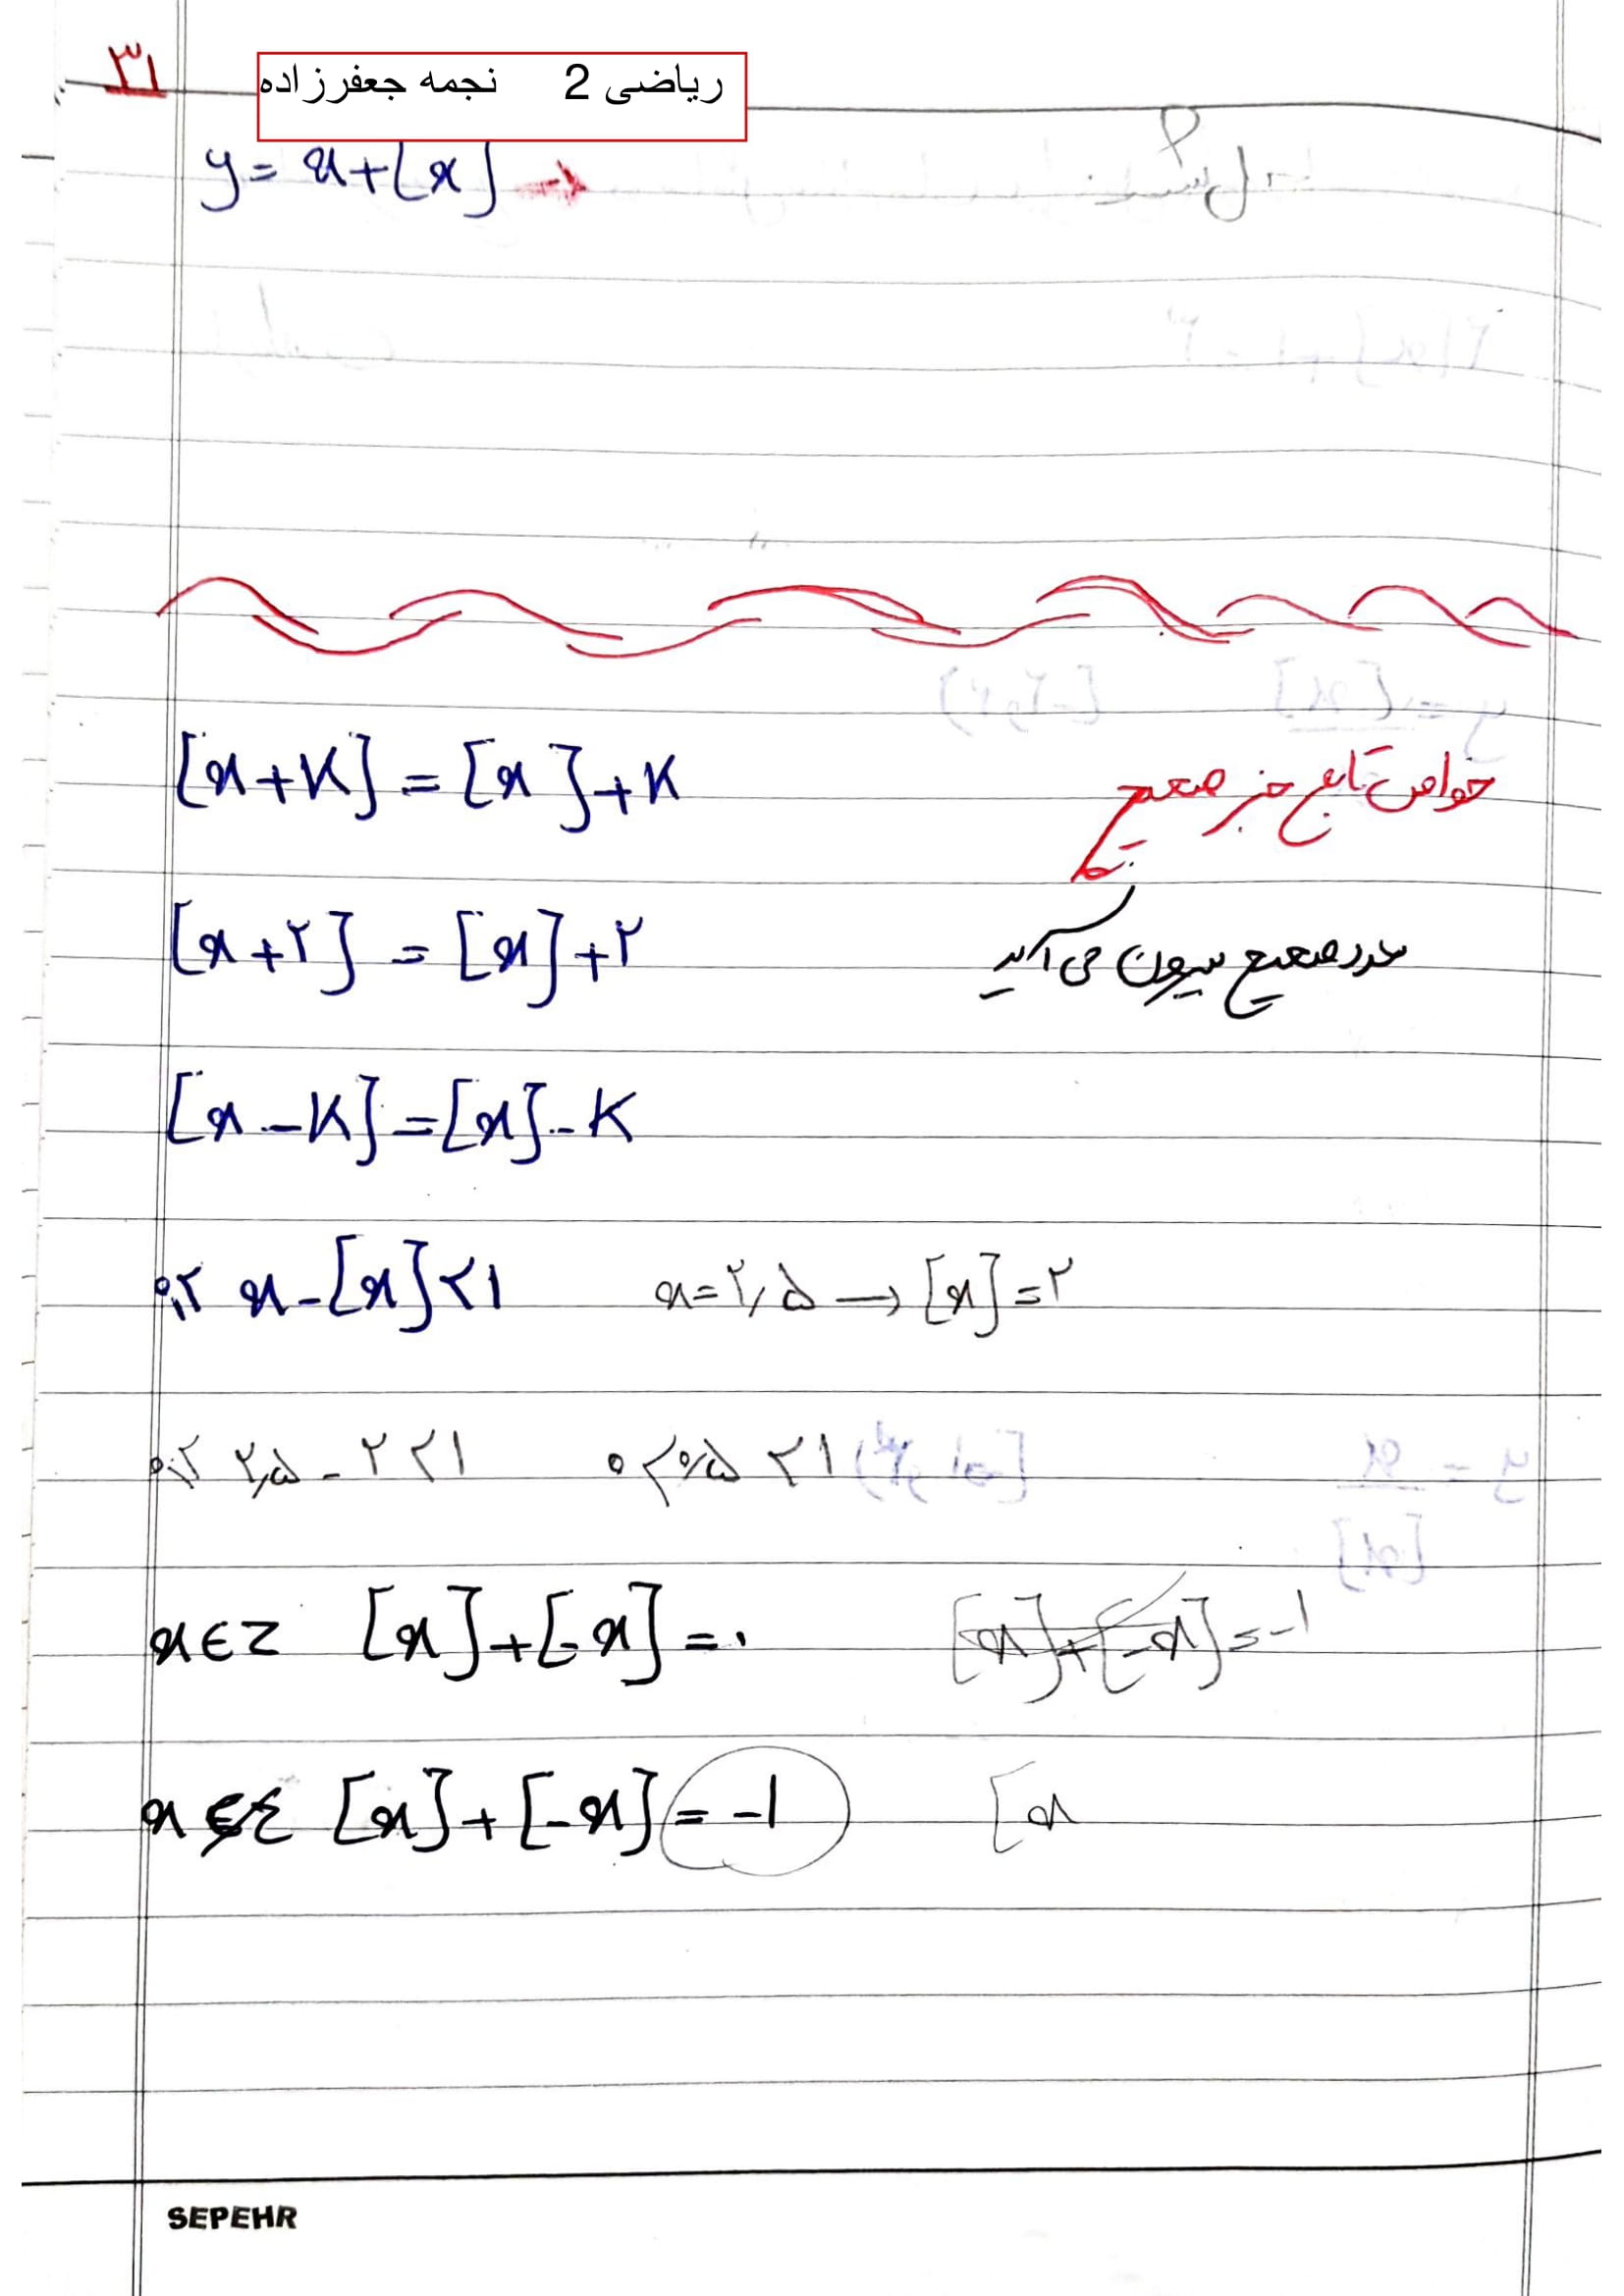 ۳۱
ریاضی 2 نجمه جعفرزاده
y = x+[x] →
[x+K] = [x]+K خواص تابع جز صحیح
[x+۲] = [x]+۲ عدد صحیح بیرون می آید
[x-K] = [x]-K
x-[x]<۱ x=۲٫۵ → [x]=۲
۲٫۵ - ۲ < ۱ ۰٫۵ < ۱
x∈Z [x]+[-x]=۰ [x]+[-x]=-۱
[x]+[-x] = -۱ [x
SEPEHR